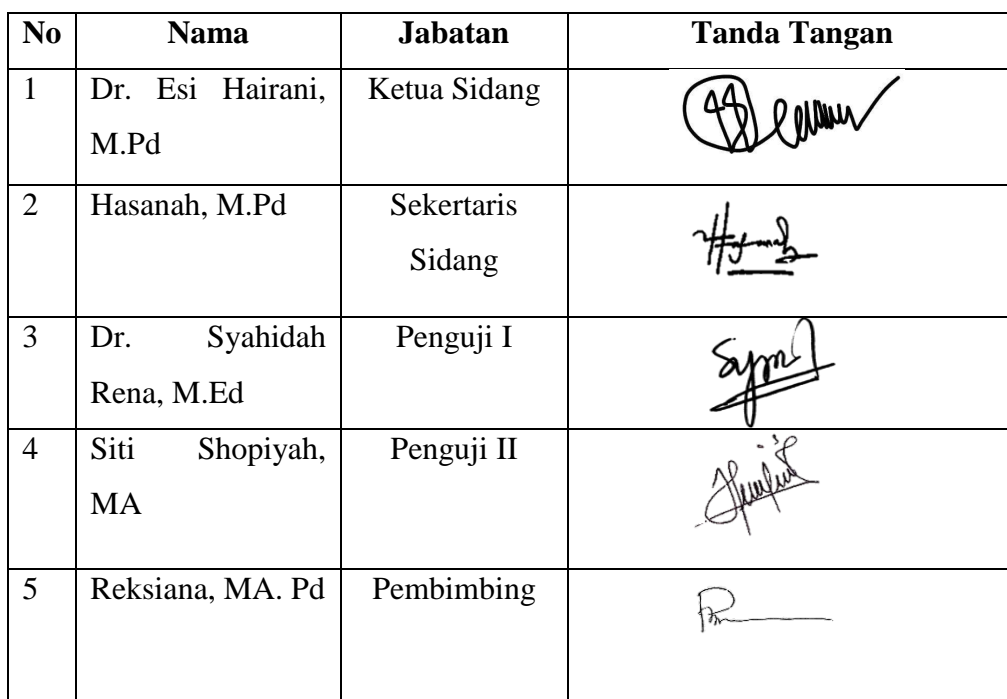 No Nama Jabatan Tanda Tangan
1 Dr. Esi Hairani, Ketua Sidang
M.Pd
2 Hasanah, M.Pd Sekertaris
Sidang
3 Dr. Syahidah Penguji I
Rena, M.Ed
4 Siti Shopiyah, Penguji II
MA
5 Reksiana, MA. Pd Pembimbing